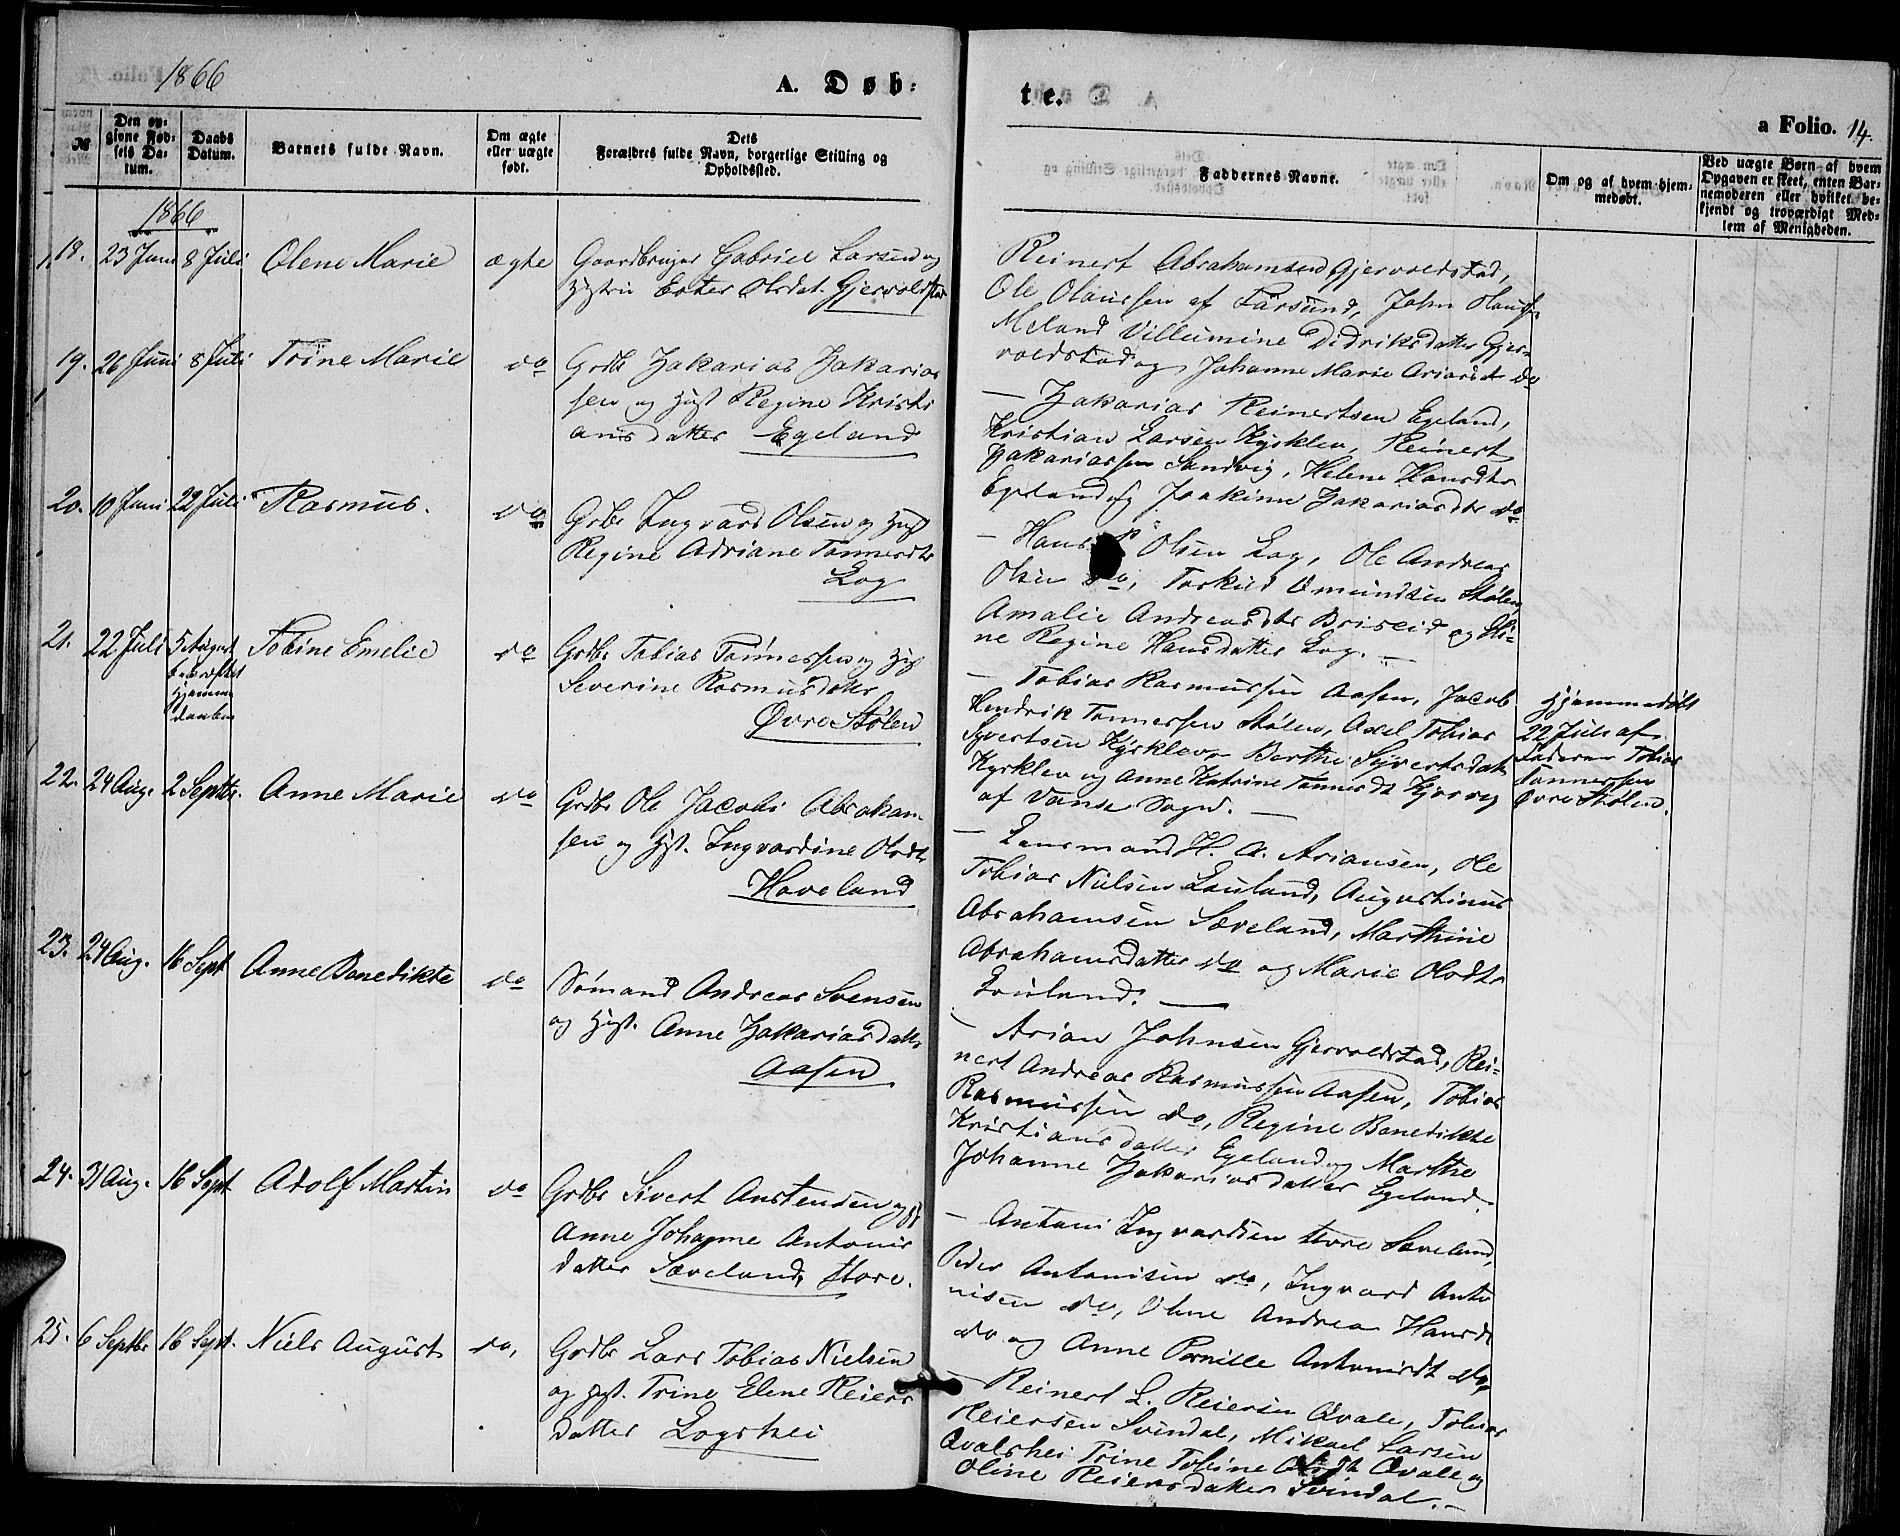 1866
A. Døb=
te.
a Folio. 14.
No
Den opgivne Fødsels Datum.
Daabs Datum.
Barnets fulde Navn.
Om ægte eller uægte født.
Dets Forældres fulde Navn, borgerlige Stilling og Opholdssted.
Faddernes Navne.
Om og af hvem hjemmedøbt.
Ved uægte Børn af hvem Opgaven er skeet, enten Barnemoderen eller hvilket bekjendt og troværdigt Medlem af Menigheden.
1866
18. 23 Juni 8 Juli Olene Marie ægte Gaardbruger Gabriel Larsen og
Hustru Ester Olsdat. Gjervoldstad
Reinert Abrahamsen Gjervoldstad,
Ole Olaussen af Farsund, John Olaus.
Meland Villumine Didriksdatter Gjer-
voldstad og Johanne Marie Ariansd do
19. 26 Juni 8 Juli Trine Marie do Grdbr Zakarias Zakarias
sen og Hust Regine Kristi
ansdatter Egeland
— Zakarias Reinertsen Egeland,
Kristian Larsen Kjørklev, Reinert
Zakariassen Sandvig, Helene Hansdtr
Egeland og Joakime Zakariasdtr do
20. 10 Juni 22 Juli Rasmus. do Grbr Ingvard Olsen og Hust
Regine Adriane Tønnesdtr
Log
— Hans Olsen Log, Ole Andreas
Olsen do, Torkild Omundsen Stølen
Amalie Andreasdtr Briseid og Sti-
ne Regine Hansdatter Log. —
21. 22 Juli 5 August bekræftet Hjemme daaben Tobine Emelie do Grdbr Tobias Tønnessen og Hus
Severine Rasmusdatter
Øvre Stølen
— Tobias Rasmussen Aasen, Jacob
Hendrik Tønnessen Stølen, Axel Tobias
Syvertsen Kjørklev, Berthe Syvertsdatr
Kjørklev og Anne Katrine Tønnesdt
af Vanse Sogn. —
Hjemmedøbt
22 Juli af
Faderen Tobias
Tønnessen
Øvre Stølen.
22. 24 Aug. 2 Septbr. Anne Marie do Grdbr Ole Jacobi Abraham
sen og Hst. Ingvardine Olsdtr
Haveland
— Lensmand H. A. Ariansen, Ole
Tobias Nielsen Louland, Augustinus
Abrahamsen Sæveland, Marthine
Abrahamsdatter do og Marie Olsdtr
Louland. —
23. 24 Aug. 16 Sept Anne Benedikte do Sømand Andreas Svensen
og Hust. Anne Zakariasdattr
Aasen
— Arian Johnsen Gjervoldstad, Rei-
nert Andreas Rasmussen Aasen, Tobias
Rasmussen do, Regine Benedikte
Kristiansdatter Egeland og Marthe
Johanne Zakariasdatter Egeland.
24. 31 Aug. 16 Sept Adolf Martin do Grdbr Sivert Austensen og Hst
Anne Johanne Antonis
datter Sæveland, store.
— Antoni Ingvardsen store Sæveland,
Peder Antonisen do, Ingvard Anto
nisen do, Oline Andrea Hansdt
do og Anne Pernille Antonisdt do,
25. 6 Septbr 16 Sept. Niels August do, Grdbr Lars Tobias Nielsen
og Hust. Trine Elene Reiers
datter Logshei
— Reinert L. Reiersen Qvale, Tobias
Reiersen Svindal, Mikael Larsen
Qvalshei Trine Tobine Qvale og
Oline Reiersdatter Svindal. —